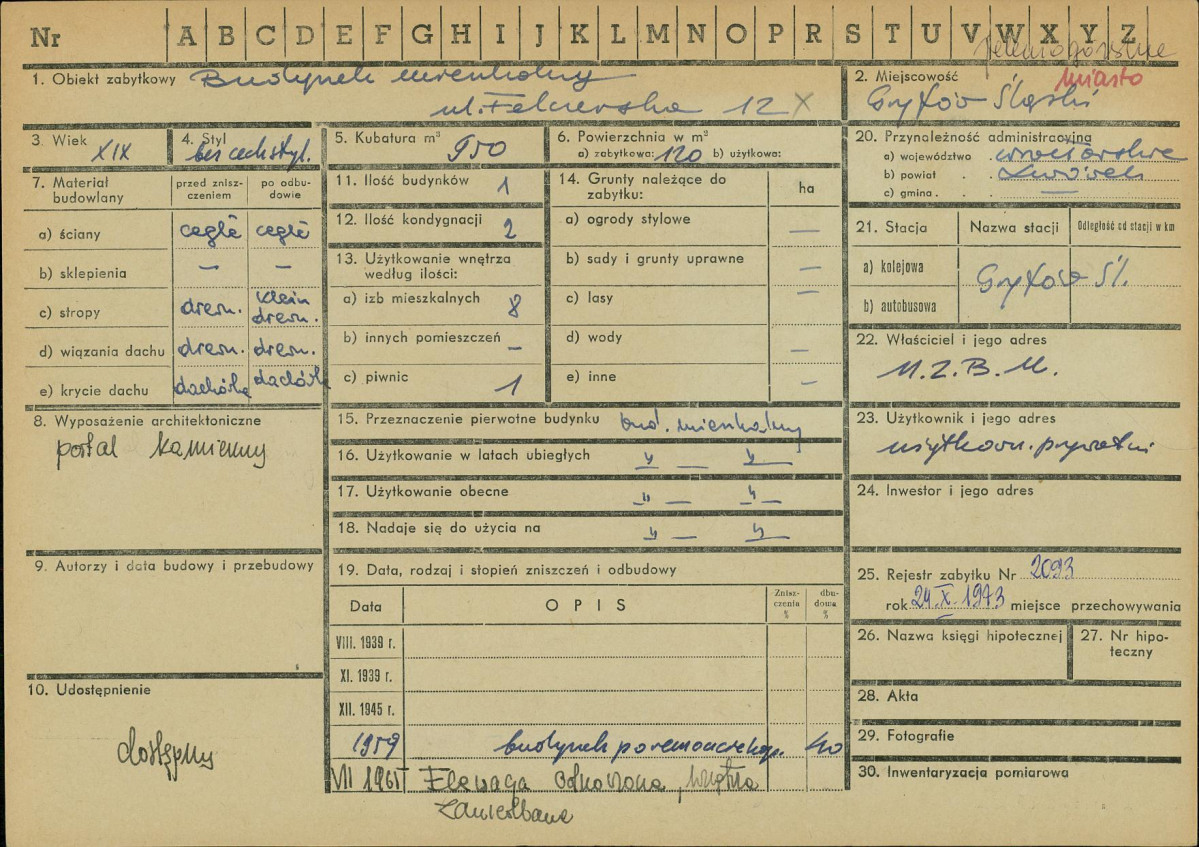 Nr A B C D E F G H I J K L M N O P R S T U V W X Y Z
jeleniogórskie
1. Obiekt zabytkowy Budynek mieszkalny
ul. Felczerska 12 X
2. Miejscowość miasto
Gryfów Śląski
3. Wiek XIX
4. Styl bez cech styl.
5. Kubatura m³ 950
6. Powierzchnia w m²
a) zabytkowa: 120 b) użytkowa:
20. Przynależność administracyjna
a) województwo wrocławskie
b) powiat Lwówek
c) gmina —
7. Materiał budowlany
przed zniszczeniem
po odbudowie
a) ściany cegła cegła
b) sklepienia — —
c) stropy drewn. klein drewn.
d) wiązania dachu drewn. drewn.
e) krycie dachu dachówka dachówka
11. Ilość budynków 1
12. Ilość kondygnacji 2
13. Użytkowanie wnętrza według ilości:
a) izb mieszkalnych 8
b) innych pomieszczeń —
c) piwnic 1
14. Grunty należące do zabytku:
ha
a) ogrody stylowe —
b) sady i grunty uprawne —
c) lasy —
d) wody —
e) inne —
21. Stacja Nazwa stacji Odległość od stacji w km
a) kolejowa
Gryfów Śl.
b) autobusowa
22. Właściciel i jego adres
M.Z.B.M.
8. Wyposażenie architektoniczne
portal kamienny
15. Przeznaczenie pierwotne budynku bud. mieszkalny
16. Użytkowanie w latach ubiegłych " — "
17. Użytkowanie obecne " — "
18. Nadaje się do użycia na " — "
23. Użytkownik i jego adres
użytkown. prywatni
24. Inwestor i jego adres
9. Autorzy i data budowy i przebudowy
19. Data, rodzaj i stopień zniszczeń i odbudowy
Data OPIS Zniszczenia % dbudowa %
VIII. 1939 r.
XI. 1939 r.
XII. 1945 r.
1959 budynek po remoncie kap. 40
VII 1965 Elewacja odnowiona, wnętrza
zaniedbane
25. Rejestr zabytku Nr 2093
rok 24.X.1973 miejsce przechowywania
26. Nazwa księgi hipotecznej
27. Nr hipoteczny
10. Udostępnienie
dostępny
28. Akta
29. Fotografie
30. Inwentaryzacja pomiarowa